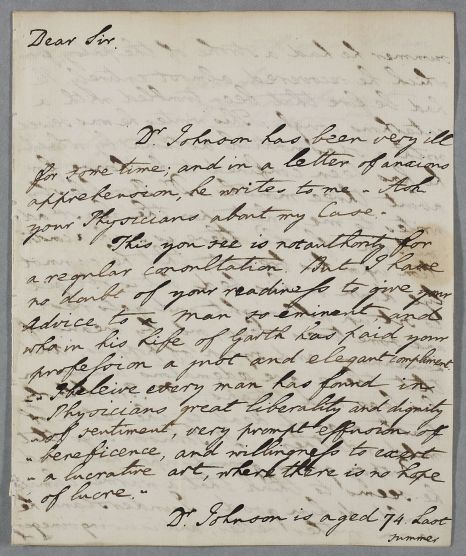 Dear Sir.
Dr. Johnson has been very ill
for some time; and in a letter of anxious
apprehension, he writes to me - Ask
your Physicians about my Case.
This you see is not authority for
a regular consultation. But I have
no doubt of your readiness to give your
advice to a man so eminent and
who in his life of Garth has paid your
profession a just and elegant compliment.
"I beleive every man has found in
"Physicians great liberality and dignity
"of sentiment, very prompt effusion of
"beneficence, and willingness to exert
"a lucrative art, where there is no hope
"of lucre."
Dr. Johnson is aged 74. Last
summer